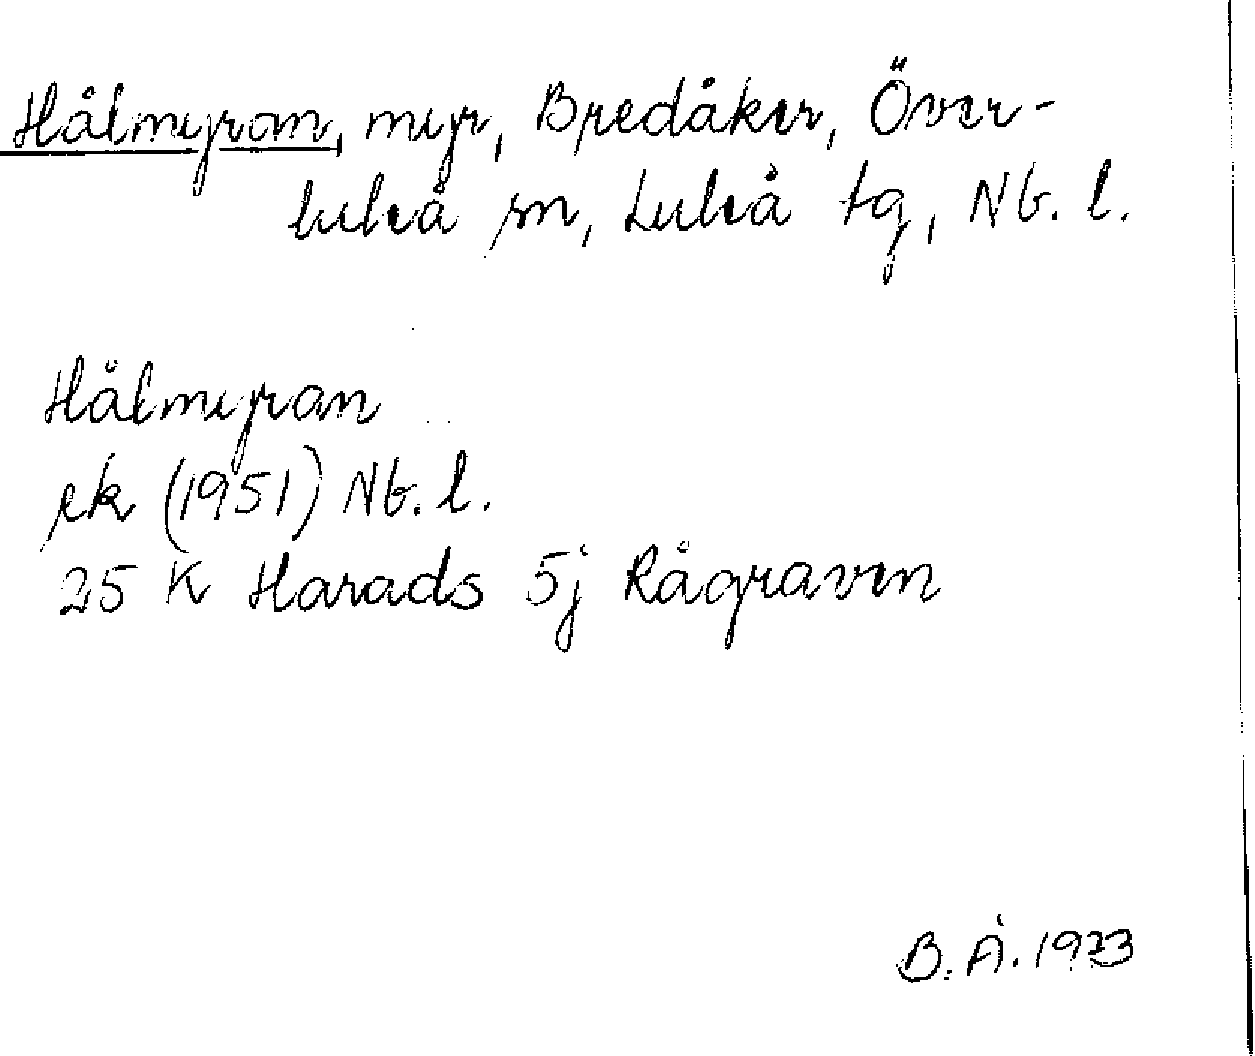 Hålmyran, myr, Bredåker, Över-
luleå sn, Luleå tg, Nb. l.
Hålmyran
ek (1951) Nb. l.
25 K Harads 5j Rågraven
B. Å. 1973